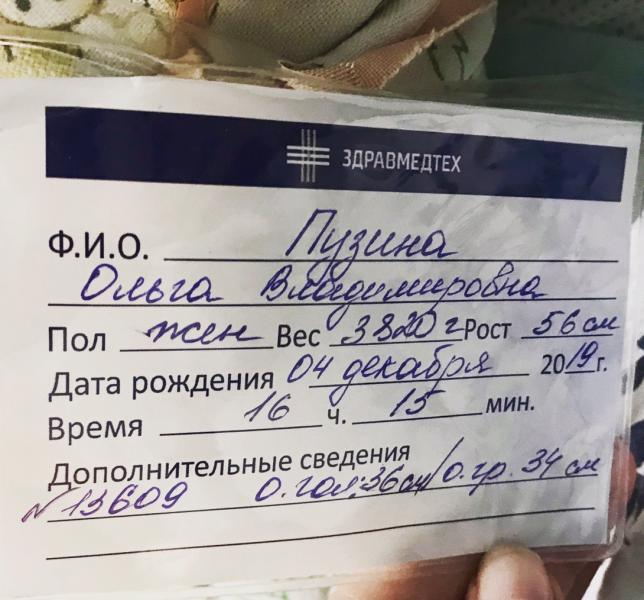 ЗДРАВМЕДТЕХ
Ф.И.О. Пузина
Ольга Владимировна
Пол жен Вес 3820 г Рост 56 см
Дата рождения 04 декабря 2019 г.
Время 16 ч. 15 мин.
Дополнительные сведения
N 13609 О. гол. 36 см/о. гр. 34 см